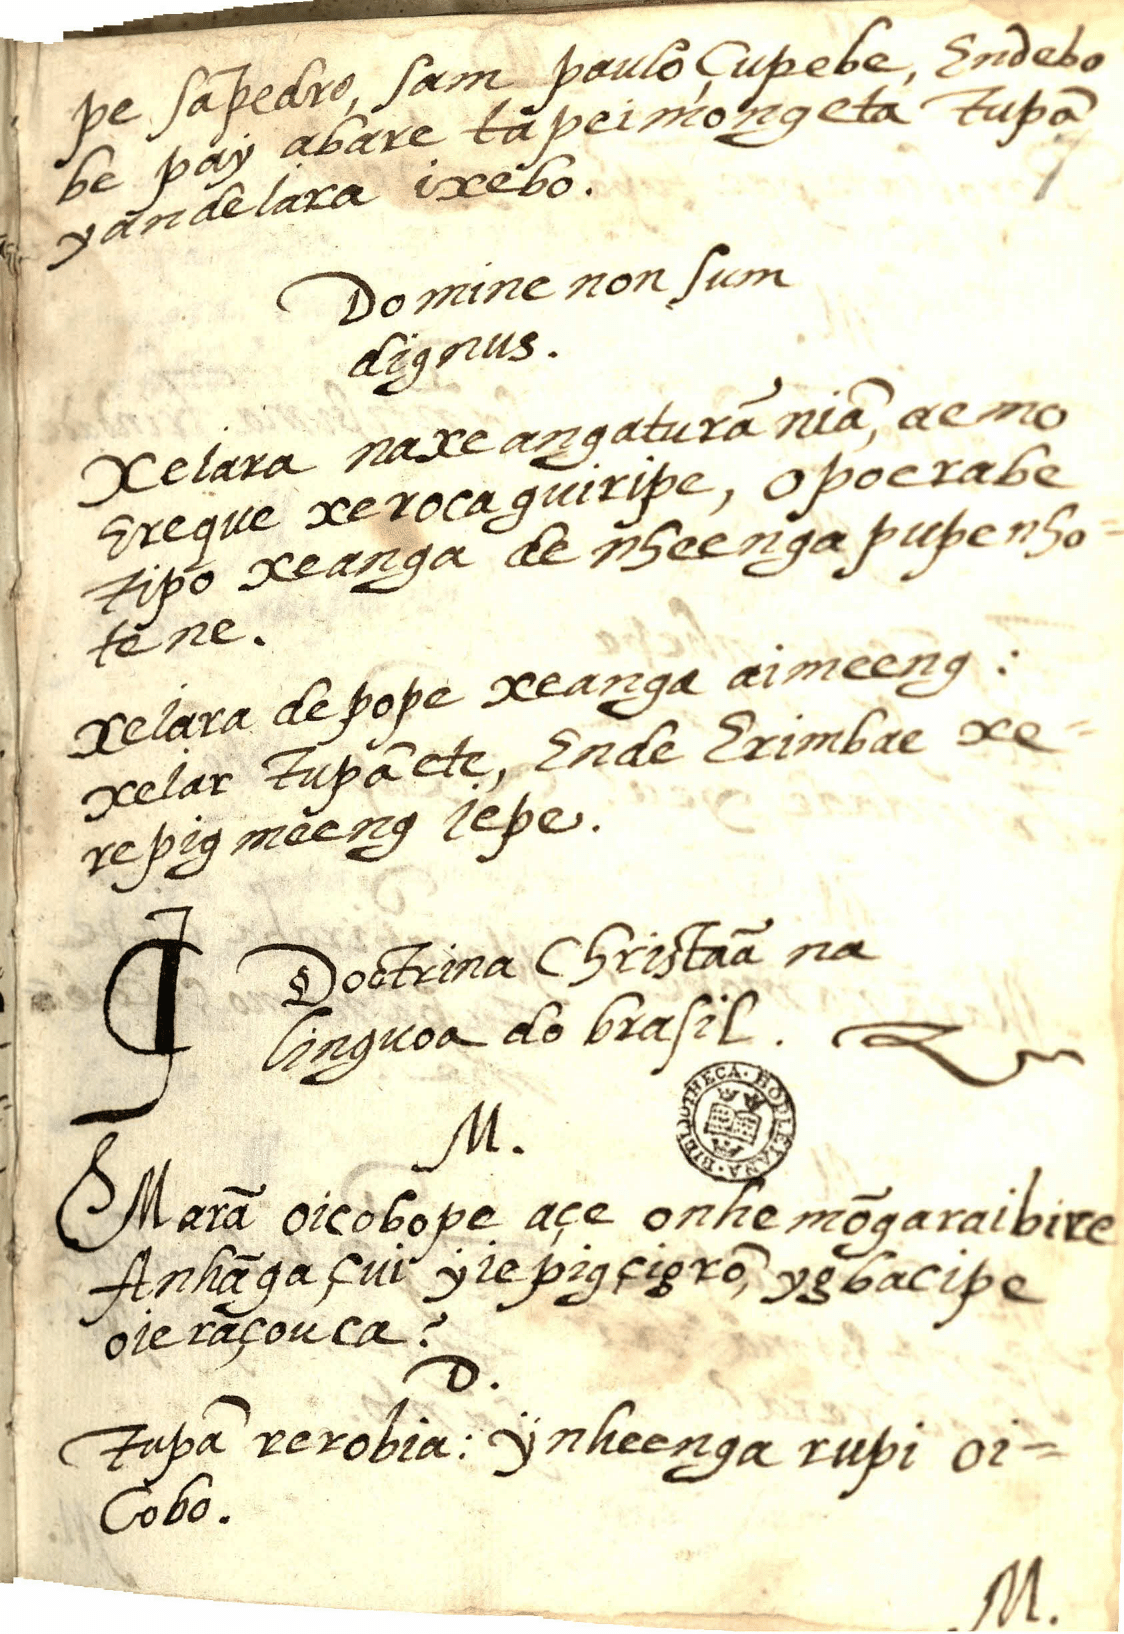 pe Sãpedro, Sam paulo, Çupebe, Endebo
be pay abare tapeimongeta Tupã
yandelara ixebo.
7
Domine non sum
dignus.
Xelara naxe angaturã niã, aemo
Ereque xeroca guiripe, opoerabe
Tipo xeanga de nheenga pupenho=
tene.
xelara depope xeanga aimeeng:
xelar Tupãete, Ende Erimbae xe=
repig meeng iepe.
Doctrina Christaã na
linguoa do brasil.
BIBLIOTHECA · BODLEIANA
M.
Marã oicobope açe onhemõgaraibire
Anhãga çui yiepigçigrõ, ygbacipe
oierãçouca?
D.
Tupã rerobia: ÿnheenga rupi oi=
Cobo.
M.